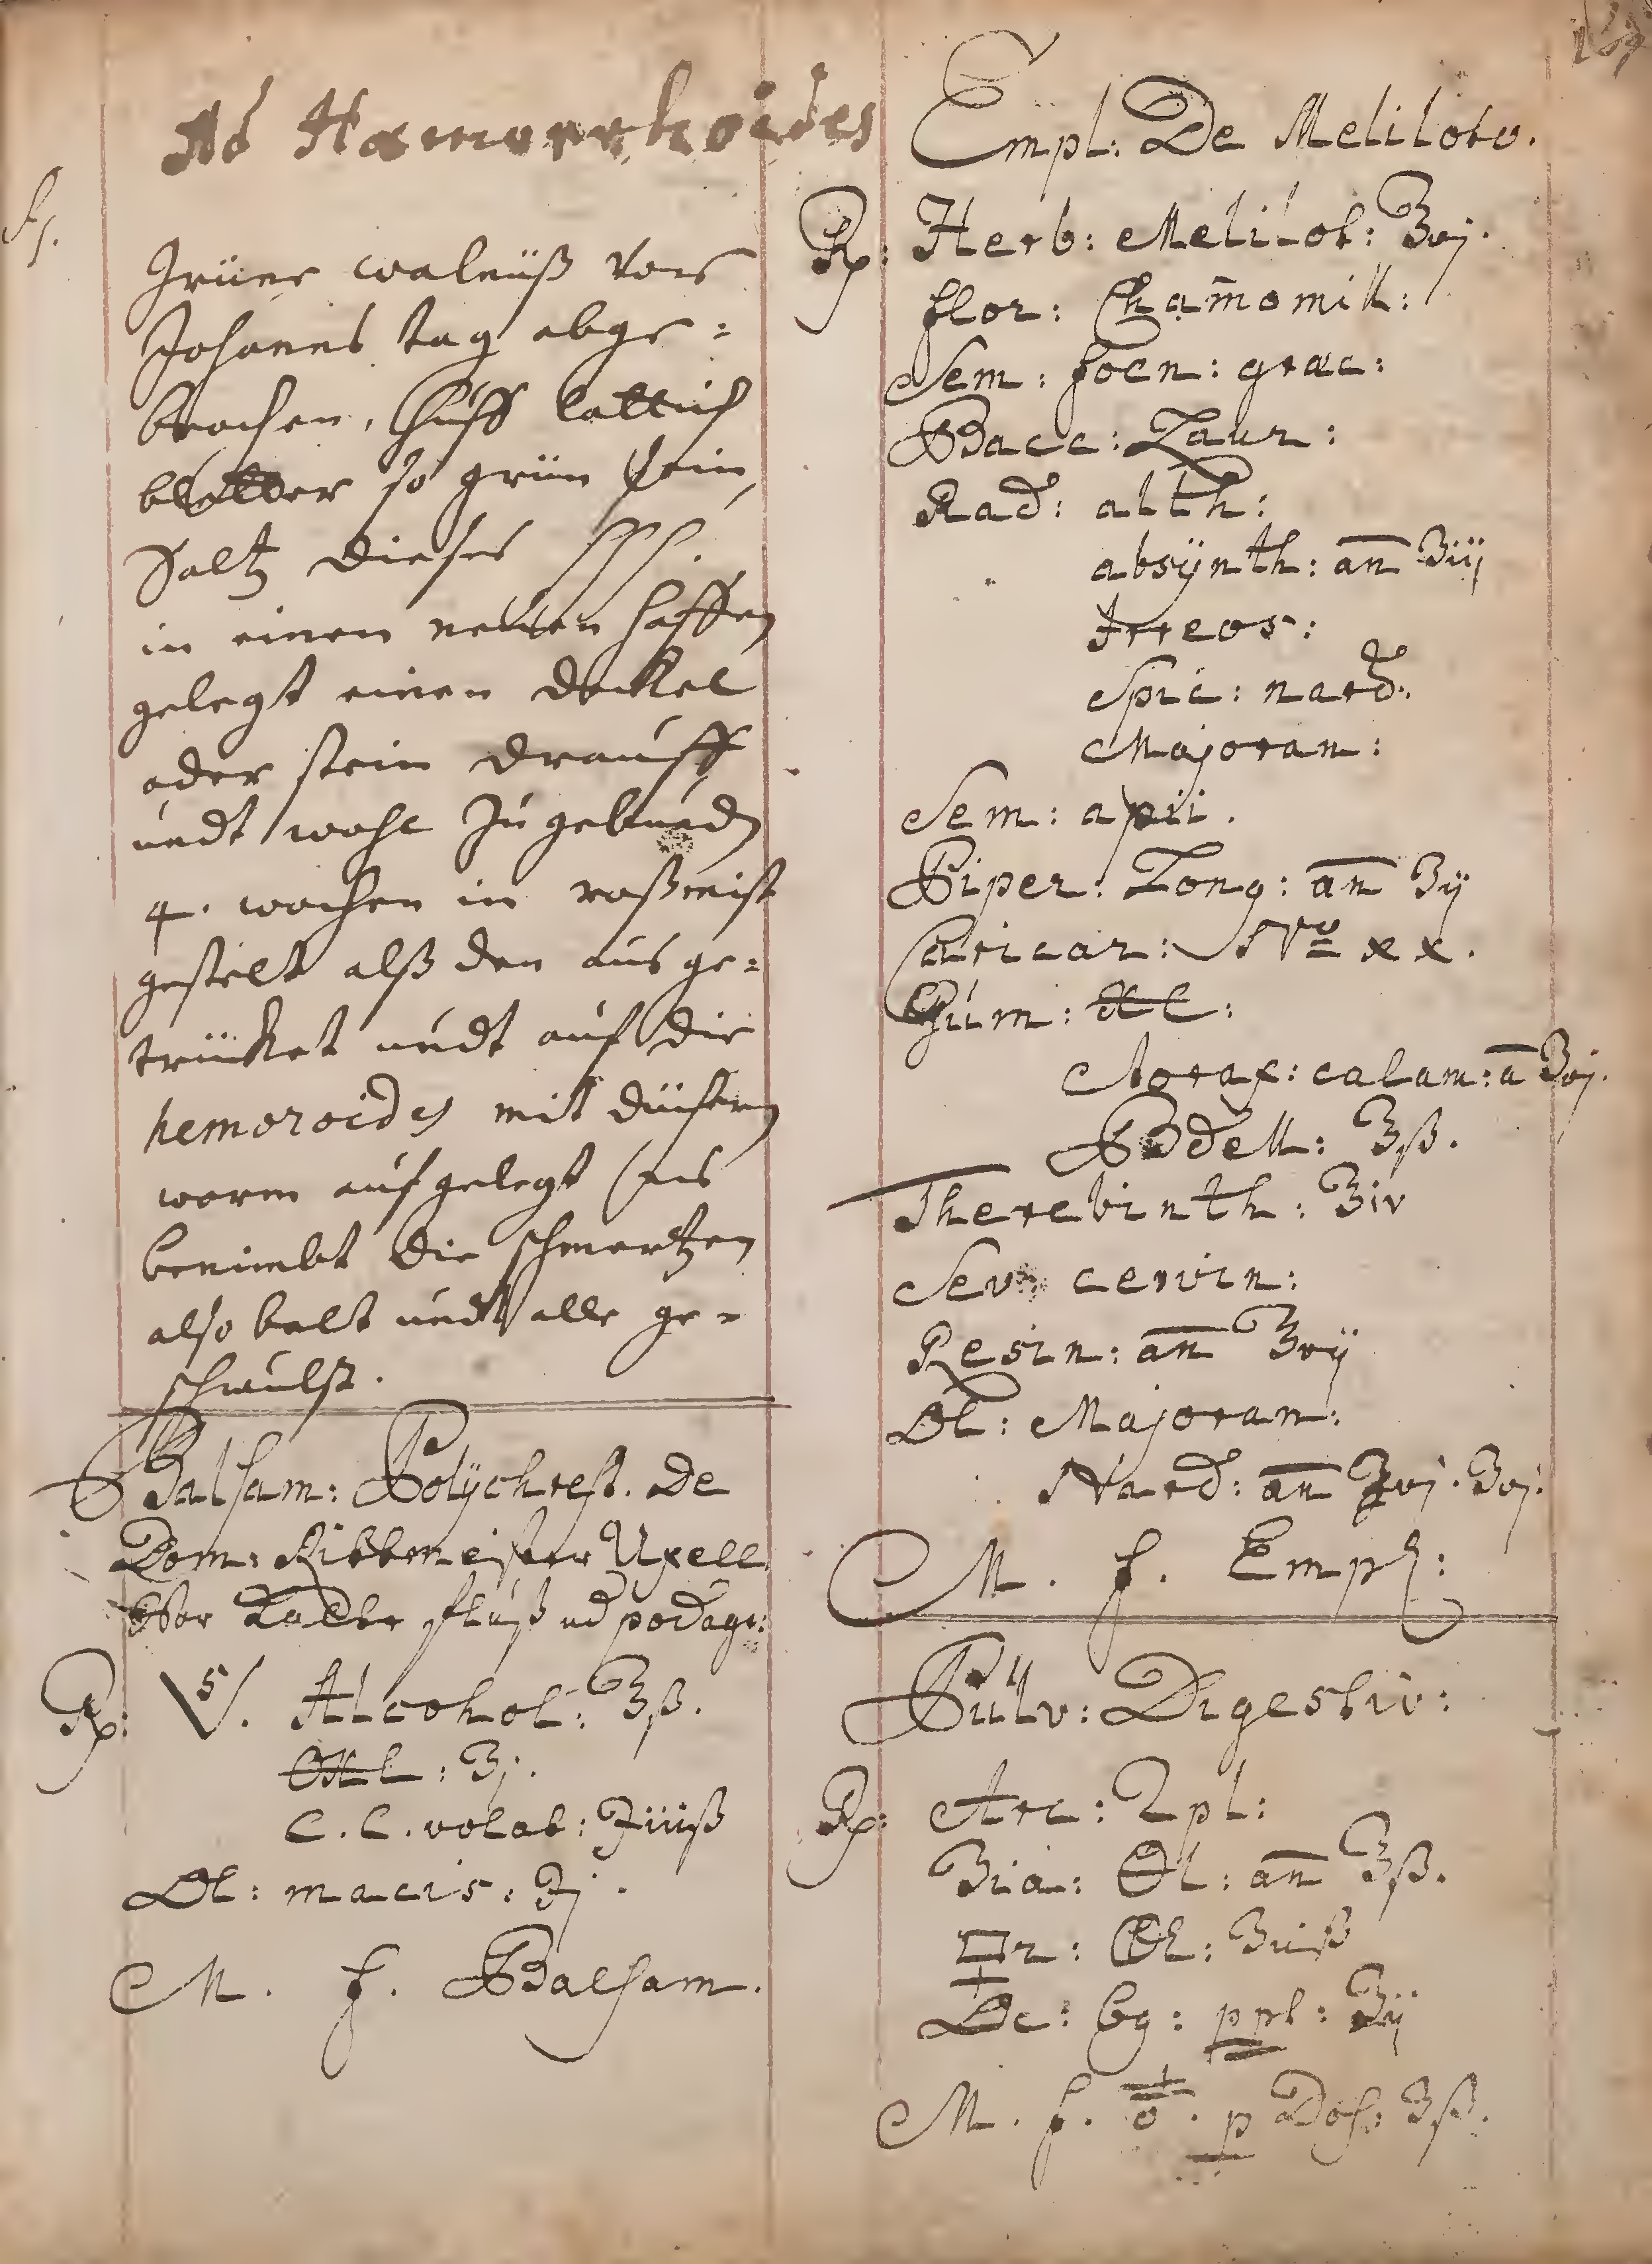 Ad Hæmorrhoides
Grüne walnüß vor
Johannis tag abge=
brochen, Huff lattich
bletter so grün sein,
Saltz dieses SSS.
in einen neuen haffen
gelegt einen deckel
oder stein drauff
undt wohl Zu gebunden
4. wochen in roßmist
gestelt alß den aus ge=
trücket undt auf die
hemoroides mit düchern
warm auf gelegt
benimbt die schmertzen
also balt undt alle ge=
schwulst.
Balsam: Polÿchrest. De
Dom: Rittmeister Uxell
Vor Kalte flüß ud podagr:
Rp: V. Alcohol: ℥ß.
: ℥j.
C. C. volat: ʒiiiß
Ol: macis: ʒj.
M. f. Balsam.
Empl: De Meliloto.
Rp: Herb: Melilot: ℥vj.
flor: Cham̄omill:
Sem: foen: græc:
Bacc: Laur:
Rad: alth:
absÿnth: an̄ ʒiij
Ireos:
Spic: nard:
Majoran:
Sem: apii.
Piper: Long: an̄ ʒij
Caricar: Nro xx.
Gum:
Storax: calam: a ʒvj.
Bdell: ℥ß.
Therebinth: ℥iv
Sev: cervin:
Resin: an̄ ℥vij
Ol: Majoran:
Nard: an̄ ʒvj.
M. f. Empl:
Pulv: Digestiv:
Rp: Arc: Dpl:
: an̄ ℥ß.
ppt: ʒij
M. f. p Dos: ʒß.